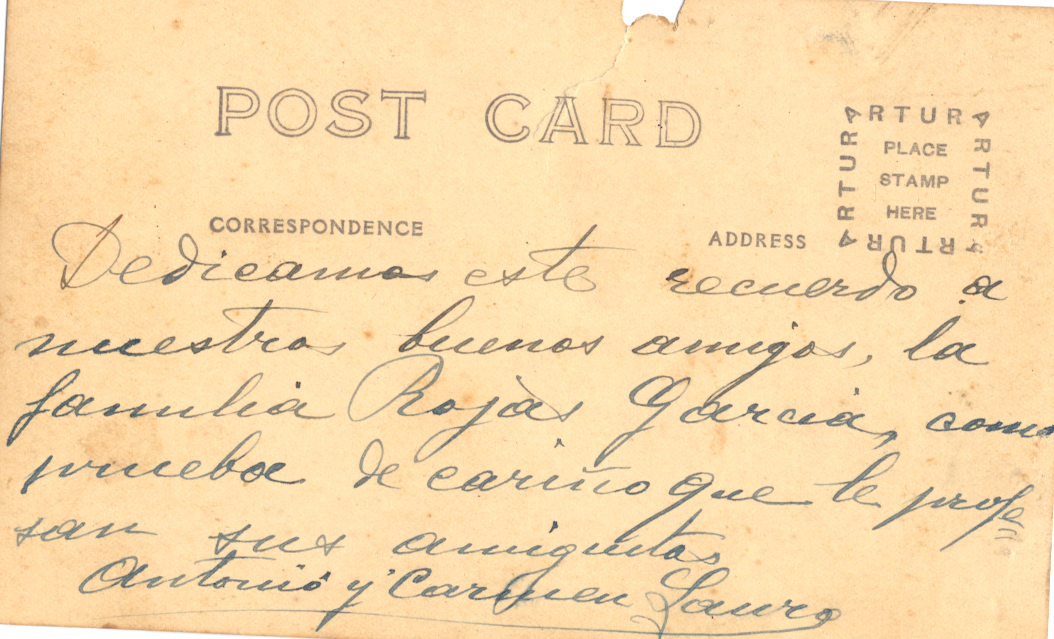 POST CARD
ARTURA
ARTURA
ARTURA
ARTURA
PLACE
STAMP
HERE
CORRESPONDENCE
ADDRESS
Dedicamos este recuerdo a
nuestros buenos amigos, la
familia Rojas García, como
prueba de cariño que le profe
san sus amiguitos
Antonio y Carmen Lauro